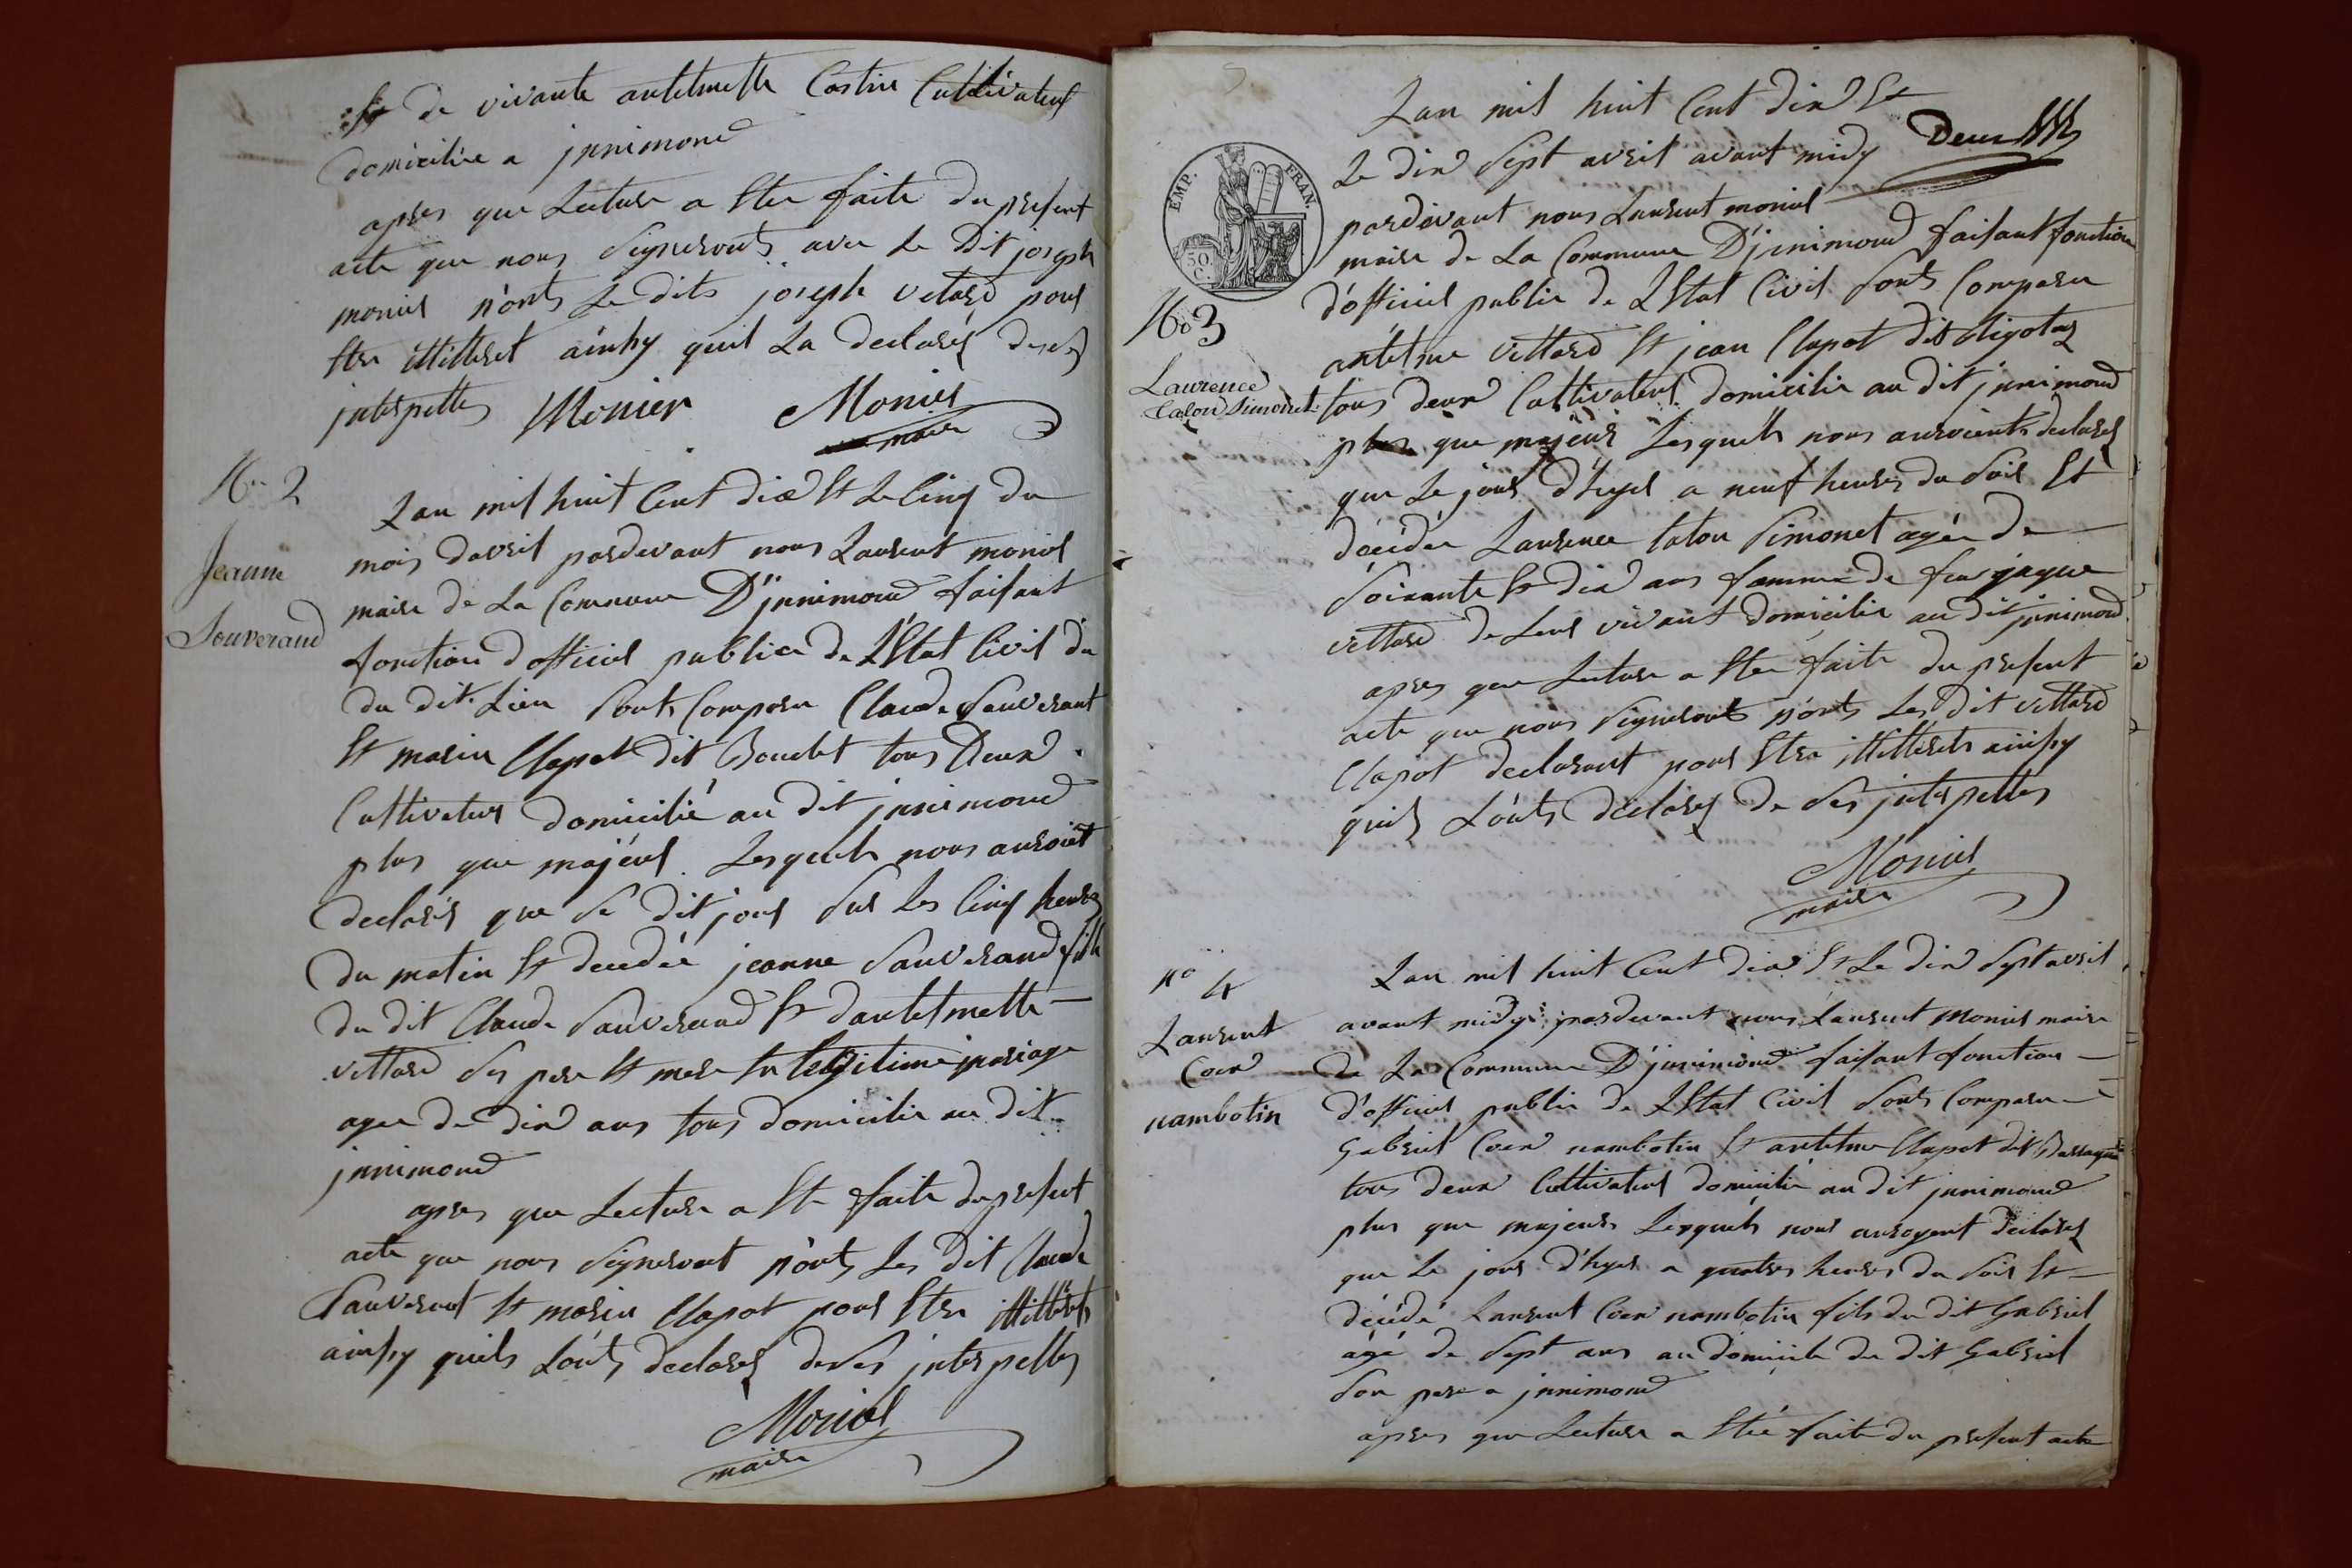 Et de vivante antelmette Costin Cultivateur
domiciliée a jnnimond
apres que Lecture a Ete faite du present
acte que nous Signeronts avec Le Dit joseph
monier n'onts Le dits joseph vetard pour
Etre illitteret ainsy quil La declarés de ces
jnterpelles Monier Monier
maire
No 2
Jeanne
Souverand
Lan mil huit Cent dix Et Le Cinq du
mois davril pardevant nous Laurent monier
maire de La Commune D'jnnimond faisant
fonction d officier public de L'Etat Civil du
du dit Lieu Sonts Comparu Claude Sauverant
Et marin Clapot dit Boudet tous Deux
Cultivateur domicilié au dit jnnimond
plus que majeur Lesquels nous auroient
declarés que Ce dit jour Sur Les Cinq heures
du matin Et decedée jeanne Sauverand fille
du dit Claude Sauverand Et dantelmette
vettard Ses pere Et mere En legitime mariage
agee de dix ans tous domicilie au dit
jnnimond
apres que Lecture a Ete faite du present
acte que nous Signeront n'onts Les dit Claude
Sauverant Et marin Clapot pour Etre illitterets
ainsy quils L'onts declarés de Ses jnterpelles
Monier
maire
EMP. FRAN.
50
C.
Lan mil huit Cent dix Et
Le dix Sept avril avant midy Deux
pardevant nous Laurent monier
maire de La Commune D'jnnimond faisant fonction
d'officier public de L'Etat Civil Sonts Comparu
No 3
Laurence
Calon Simonet
antelme vettard Et jean Clapot dit Ligotaz
tous deux Cultivateur domicilie au dit jnnimond
plus que majeur Lesquels nous auroients declarés
que Le jour d'hyer a neuf heures du Soir Et
décédée Laurence Calon Simonet agée de
Soixante Et dix ans femme de feu jaque
vettard de Leur vivant domicilie au dit jnnimond
apres que Lecture a Ete faite du present
acte que nous Signeronts n'onts Les dit vettard
Clapot declarant pour Etre illitterets ainsy
quils L'onts declarés de Ses jnterpelles
Monier
maire
No 4
Laurent
Coex
nambotin
Lan mil huit Cent dix Et Le dix Sept avril
avant midy pardevant nous Laurent Monier maire
de La Commune D'jnnimond faisant fonction
d'officier public de L'Etat Civil Sonts Comparu
Gabriel Coex nambotin Et antelme Clapot dit
tous deux Cultivateur domicilie au dit jnnimond
plus que majeurs Lesquels nous auroyent declarés
que Le jour d'hyer a quatres heures du Soir Et
décédé Laurent Coex nambotin fils du dit Gabriel
agé de Sept ans au domicile du dit Gabriel
Son pere a jnnimond
apres que Lecture a Eté faite du present acte